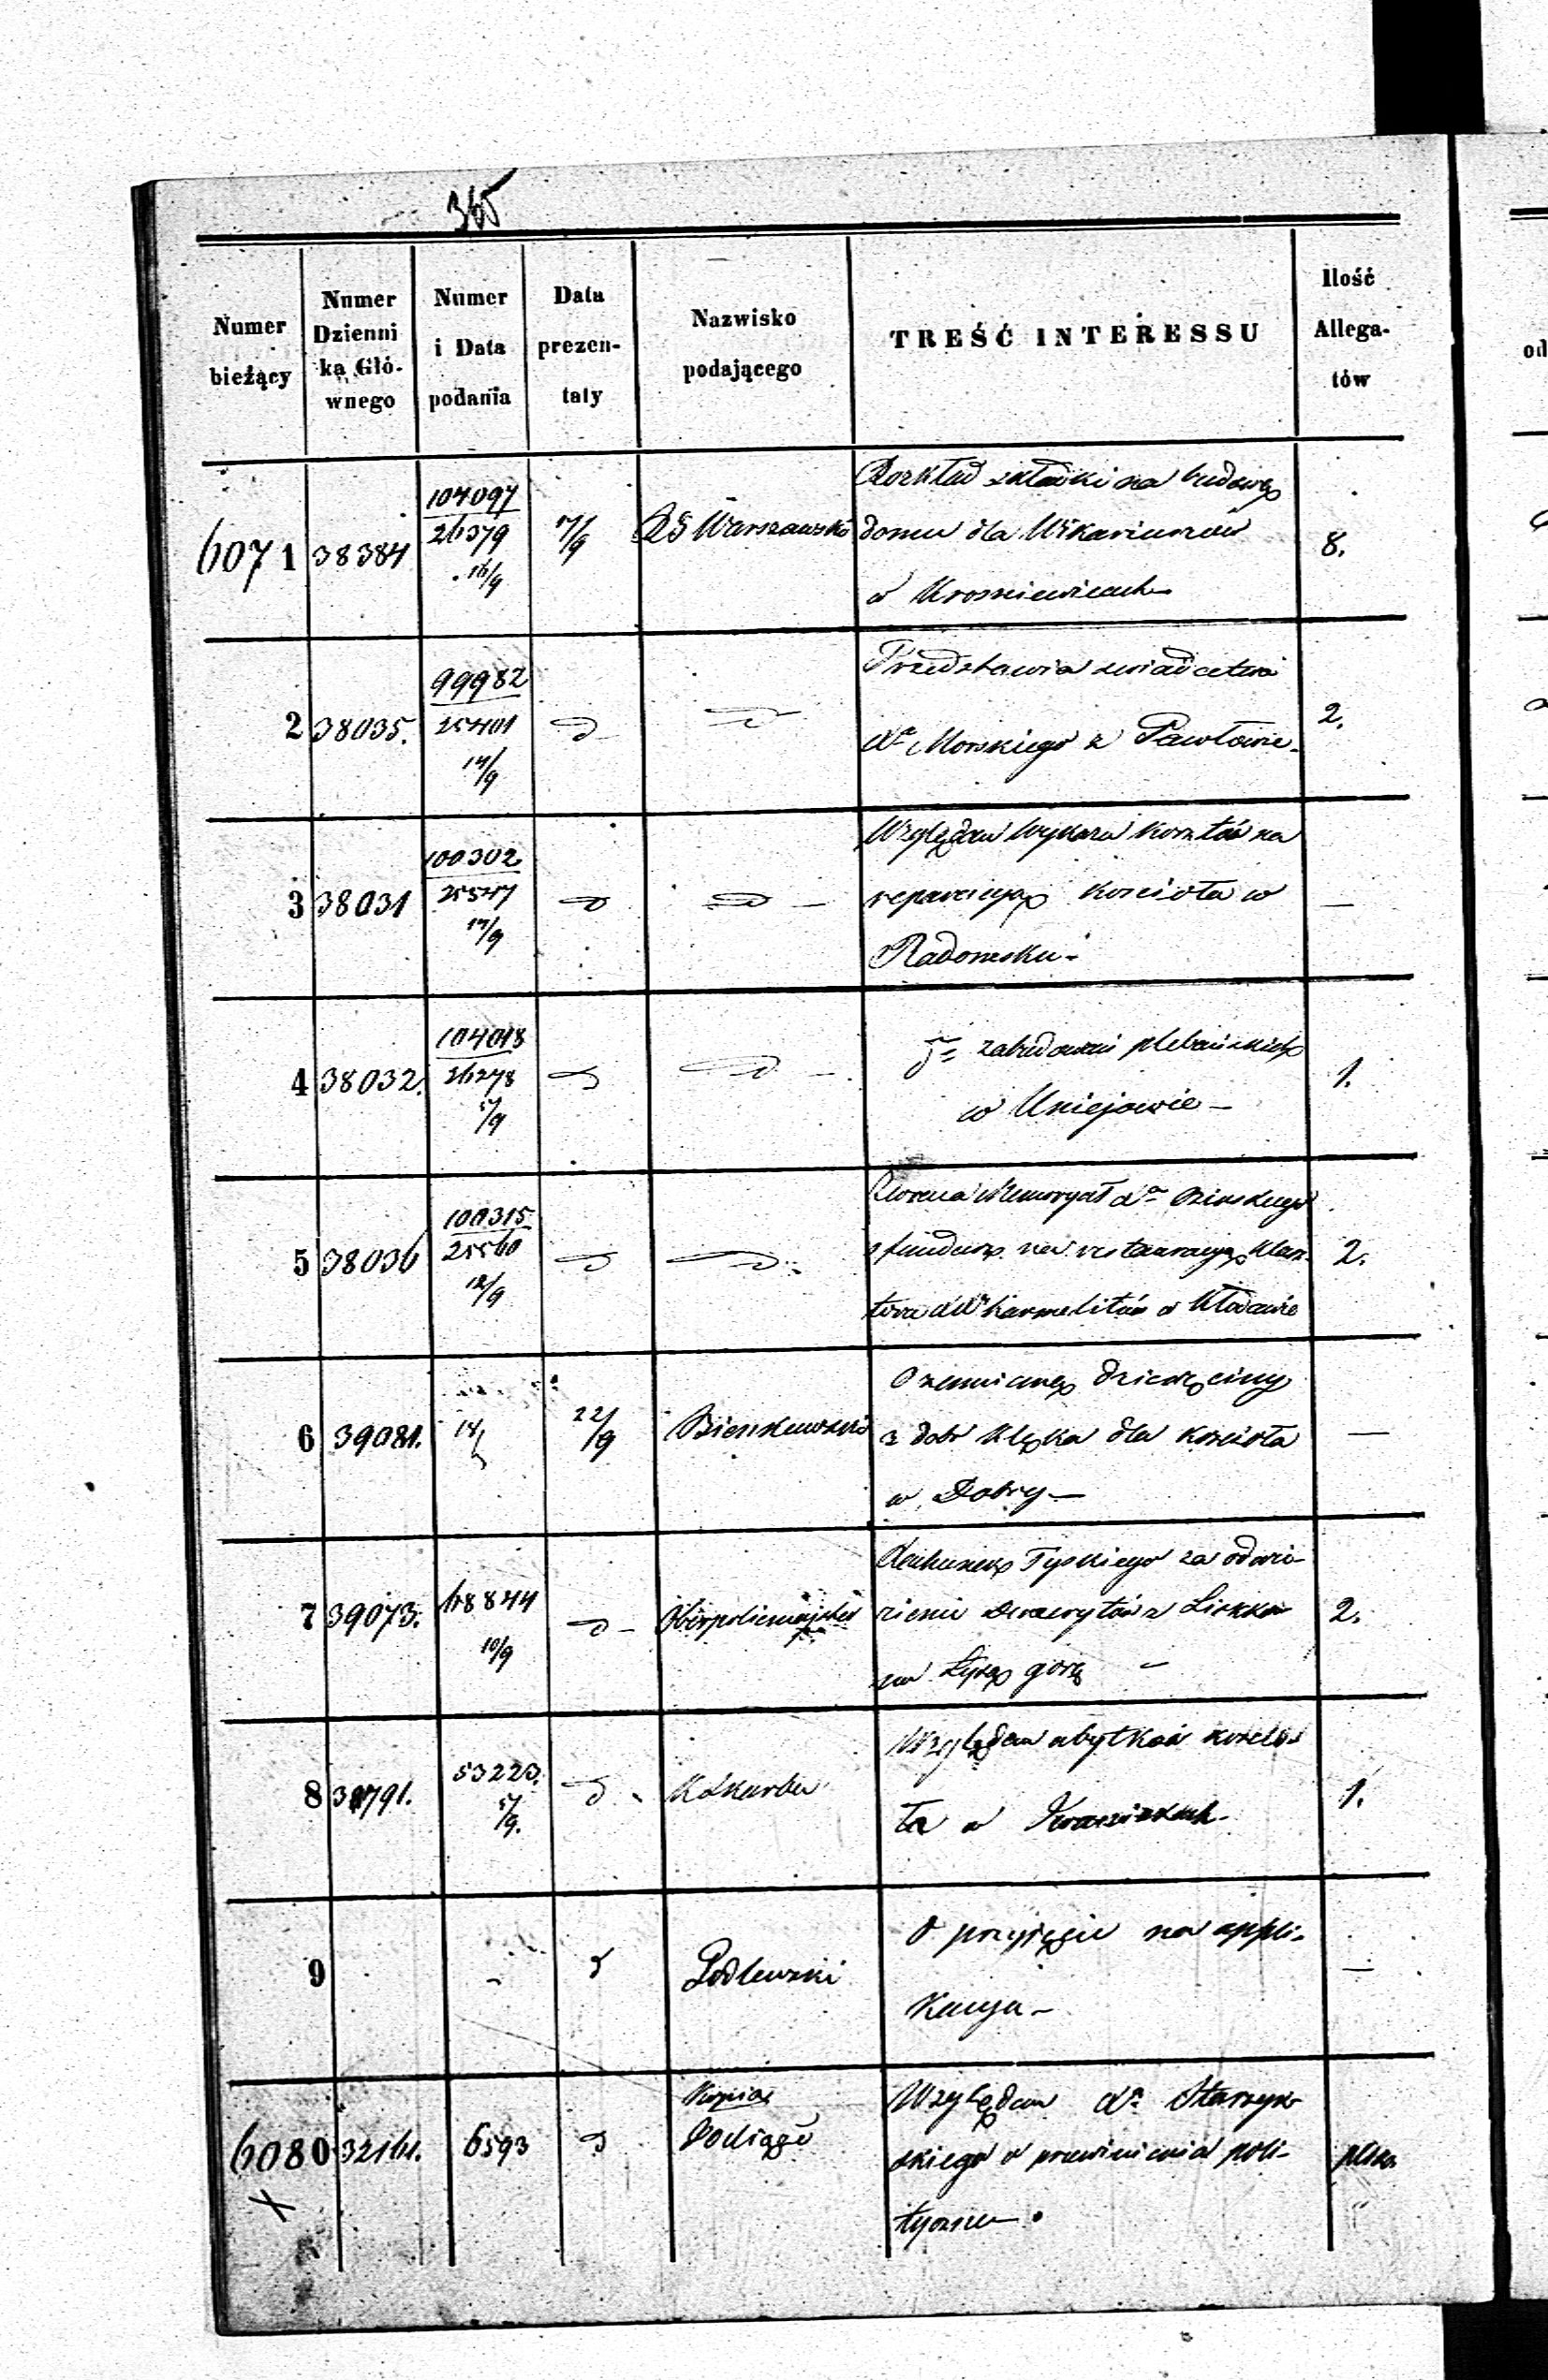 365
Numer bieżący
Numer Dzienni ka Głó- wnego
Numer i Data podania
Data prezen- taty
Nazwisko podającego
TREŚĆ INTERESSU
Ilość Allega- tów
6071 38384 104097 26379 16/9 17/9 RG Warszawski 8.
Rozkład składki na budowę
domu dla Wikariuszów
w Krosniewicach
2 38035. 99982 25401 14/9 2.
Przedstawia swiadectwa
Xa Morskiego z Pawłowic
3 38031 100302 25547 14/9 —
Względem wykazu kosztów na
reparacyą kościoła w
Radomsku
4 38032. 104018 26278 17/9 1.
zabudowań plebańskich
w Uniejowie —
5 38036 100315 25560 12/9 2.
Memoryał Xa
fundusz na restauracyą klasz-
tora XX Karmelitów w Kłodawie
6 39081. 22/9 Bienkowski —
O zamianę dziesięciny
z dobr Klęka dla kościoła
w Dobry —
7 39073. 68844 10/9 Oberpolicmajster 2.
Rachunek Tyskiego za odwie-
zienie z
na Łysą górę —
8 53223. 17/9. K Skarbu 1.
Względem kościo
ła w
9 Podlewski —
O przyjęcie na appli-
kacyą —
6080 32161. 6593 Kopia
Względem Xa Starzyń
skiego o przewinienia poli-
tyczne